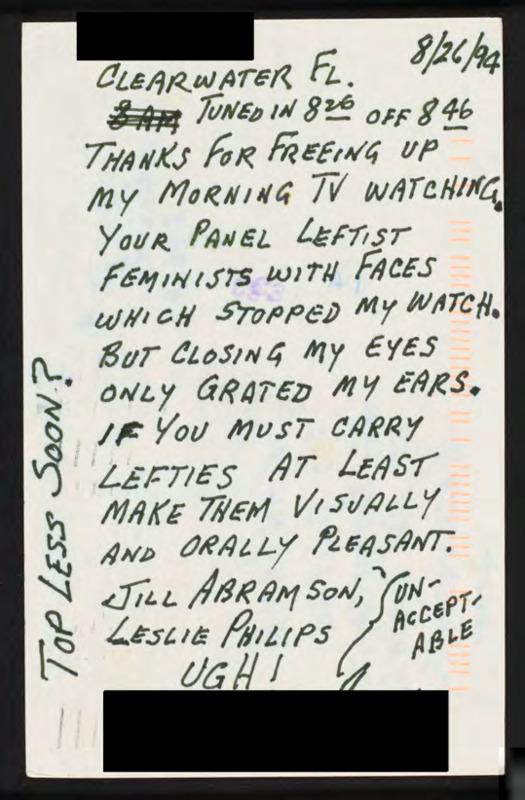 8/26/94
CLEARWATER FL.
8 AM TUNED IN 8 26 OFF 8 46
THANKS FOR FREEING UP
MY MORNING TV WATCHING.
YOUR PANEL LEFTIST
FEMINISTS WITH FACES
WHICH STOPPED MY WATCH.
BUT CLOSING MY EYES
ONLY GRATED MY EARS.
IF YOU MUST CARRY
LEFTIES AT LEAST
MAKE THEM VISUALLY
AND ORALLY PLEASANT.
JILL ABRAMSON,
LESLIE PHILIPS
UGH!
UN-
ACCEPT-
ABLE
TOP LESS SOON?